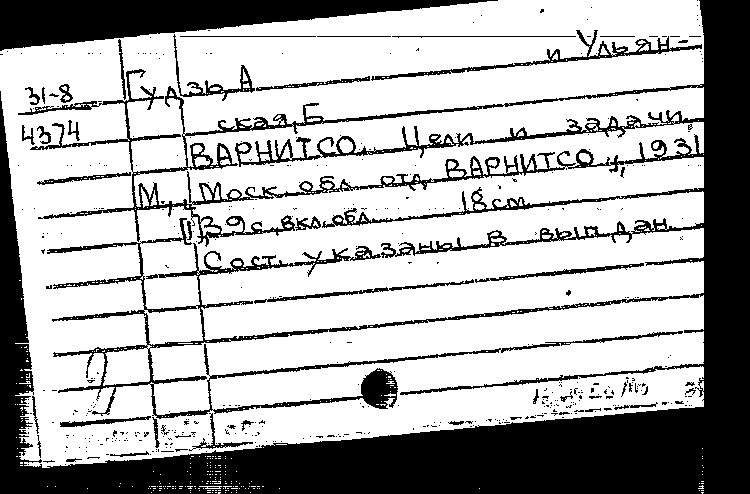 31-8
4374
Гудзь, А и Ульян-
ская, Б
ВАРНИТСО. Цели и задачи.
М., Моск. обл. отд. ВАРНИТСО, 1931
[1], 39 с., вкл. обл. 18 см
Сост. указаны в вып. дан.
2